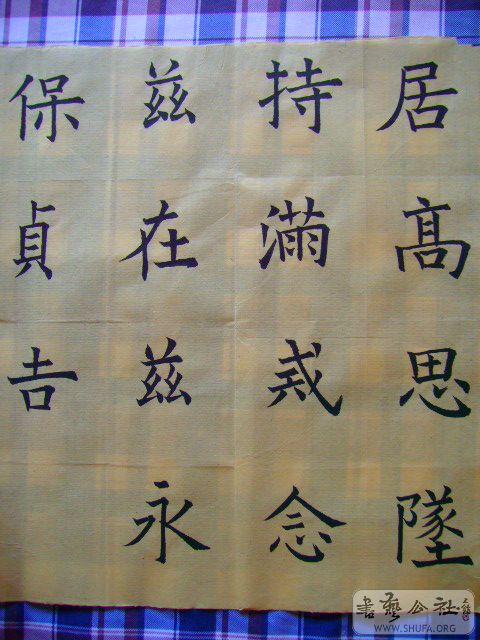 居高思墜
持滿戒念
茲在茲永
保貞吉
書藝公社
WWW.SHUFA.ORG